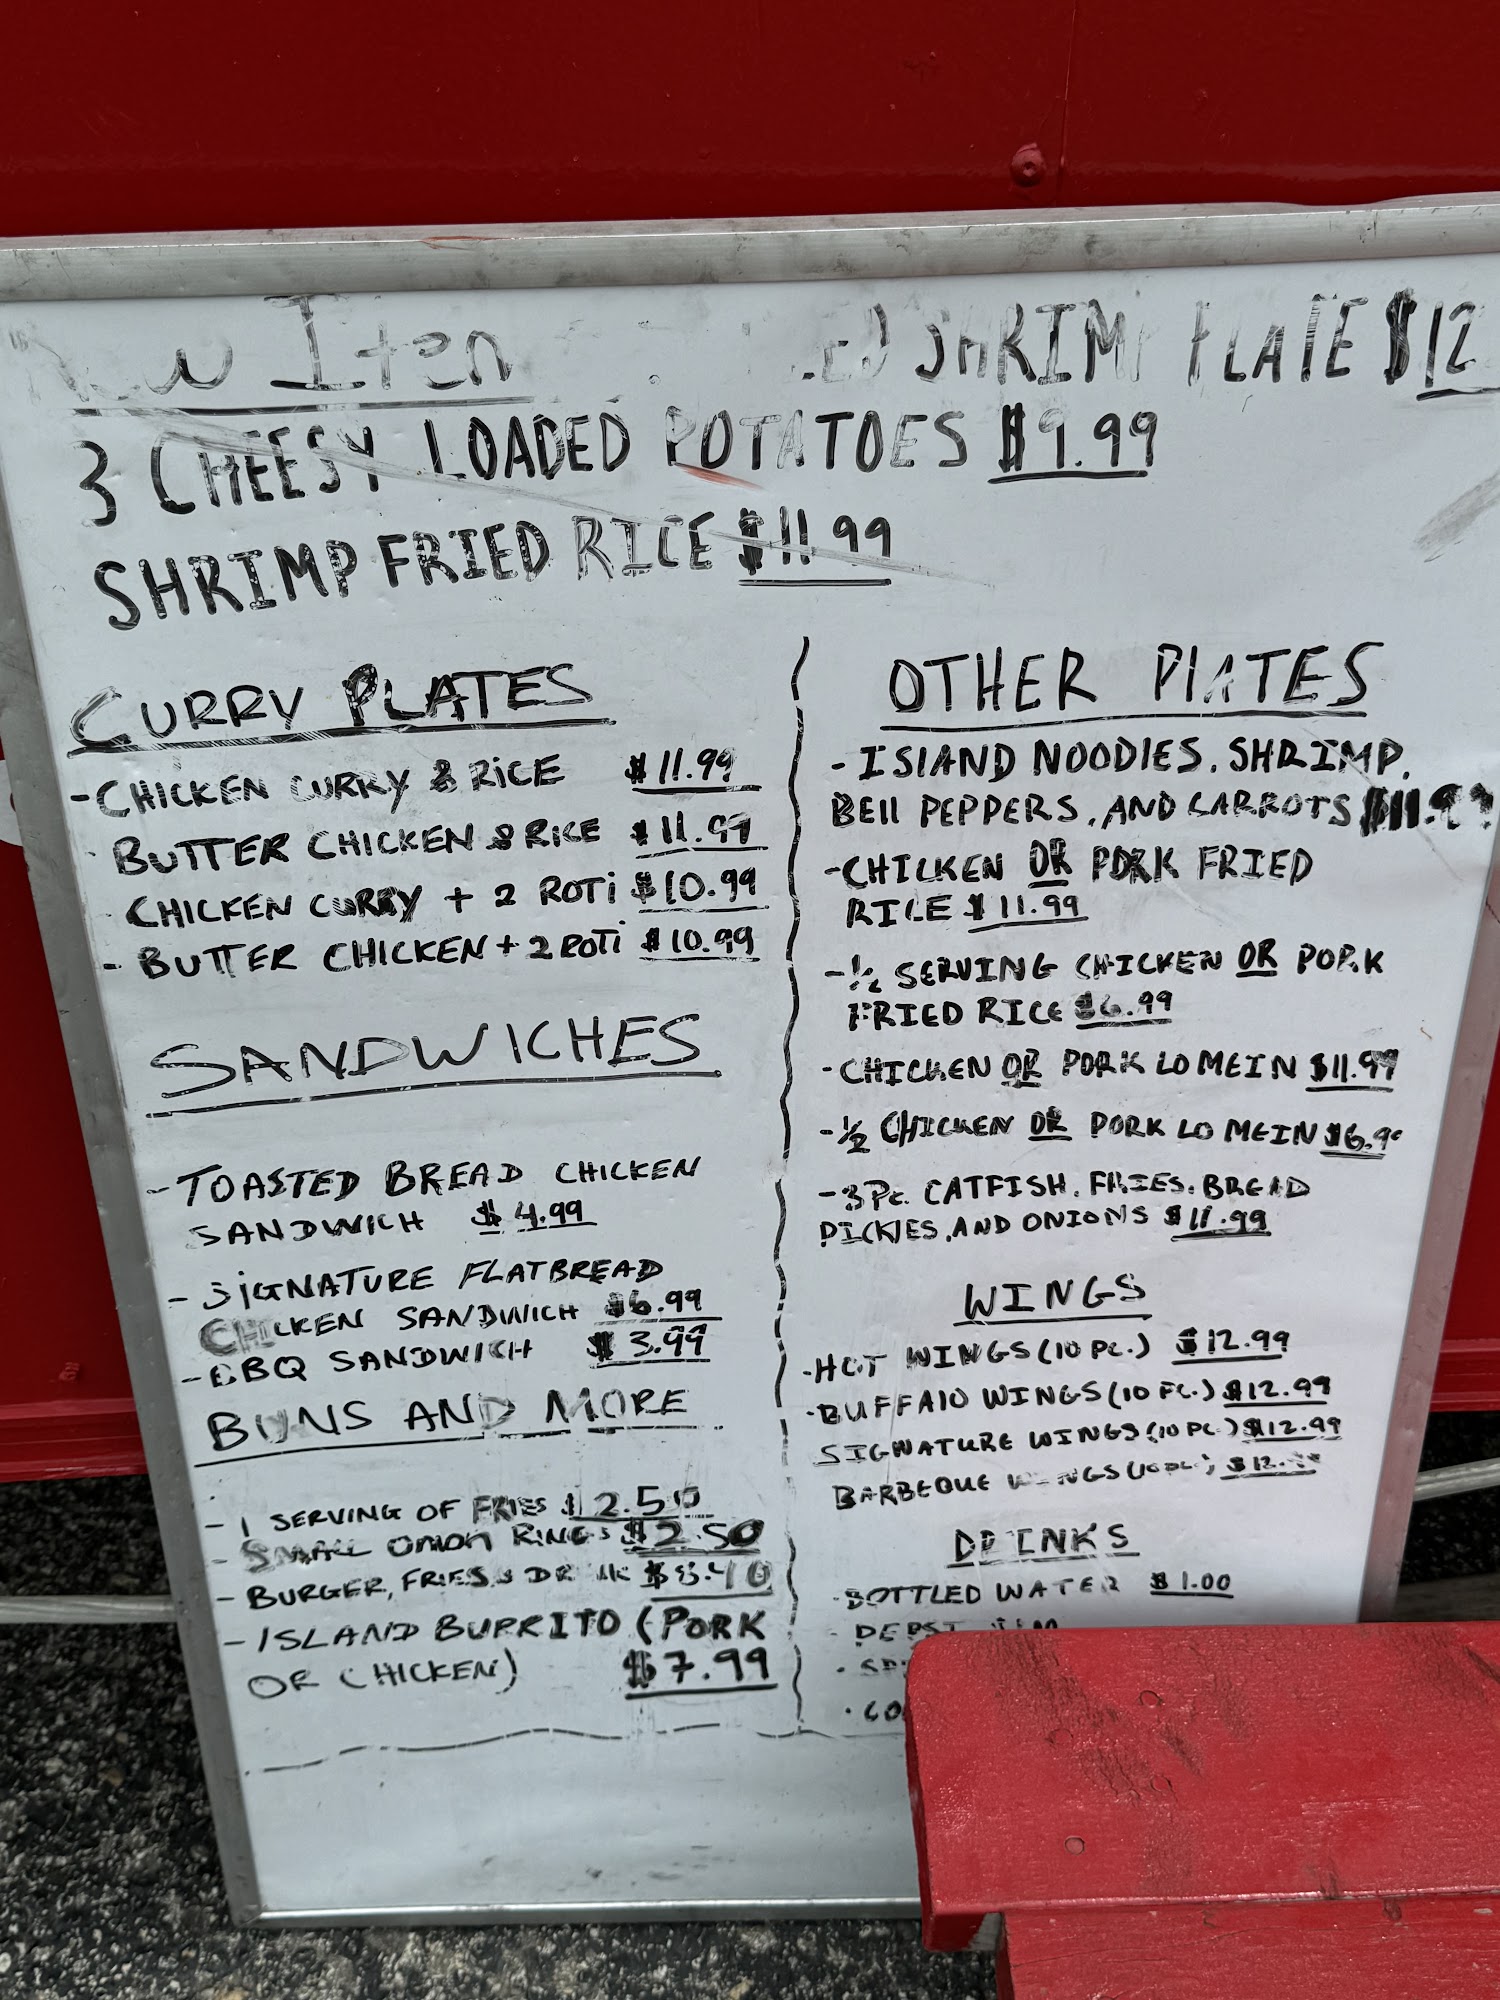 New Item
SHRIMP PLATE $12
3 CHEESY LOADED POTATOES $9.99
SHRIMP FRIED RICE $11.99
CURRY PLATES
- CHICKEN CURRY & RICE $11.99
- BUTTER CHICKEN & RICE $11.99
CHICKEN CURRY + 2 ROTI $10.99
- BUTTER CHICKEN + 2 ROTI $10.99
SANDWICHES
- TOASTED BREAD CHICKEN
SANDWICH $4.99
- SIGNATURE FLATBREAD
CHICKEN SANDWICH $6.99
- BBQ SANDWICH $3.99
BUNS AND MORE
- 1 SERVING OF FRIES $2.50
- SMALL ONION RINGS $2.50
- BURGER, FRIES & DRINK
- ISLAND BURRITO (PORK
OR CHICKEN) $7.99
OTHER PLATES
- ISLAND NOODLES, SHRIMP,
BELL PEPPERS, AND CARROTS $11.99
- CHICKEN OR PORK FRIED
RICE $11.99
- 1/2 SERVING CHICKEN OR PORK
FRIED RICE $6.99
- CHICKEN OR PORK LO MEIN $11.99
- 1/2 CHICKEN OR PORK LO MEIN $6.99
- 3 Pc. CATFISH, FRIES, BREAD
PICKLES, AND ONIONS $11.99
WINGS
- HOT WINGS (10 PC.) $12.99
- BUFFALO WINGS (10 PC.) $12.99
SIGNATURE WINGS (10 PC.) $12.99
BARBEQUE WINGS (10 PC.) $12.99
DRINKS
- BOTTLED WATER $1.00